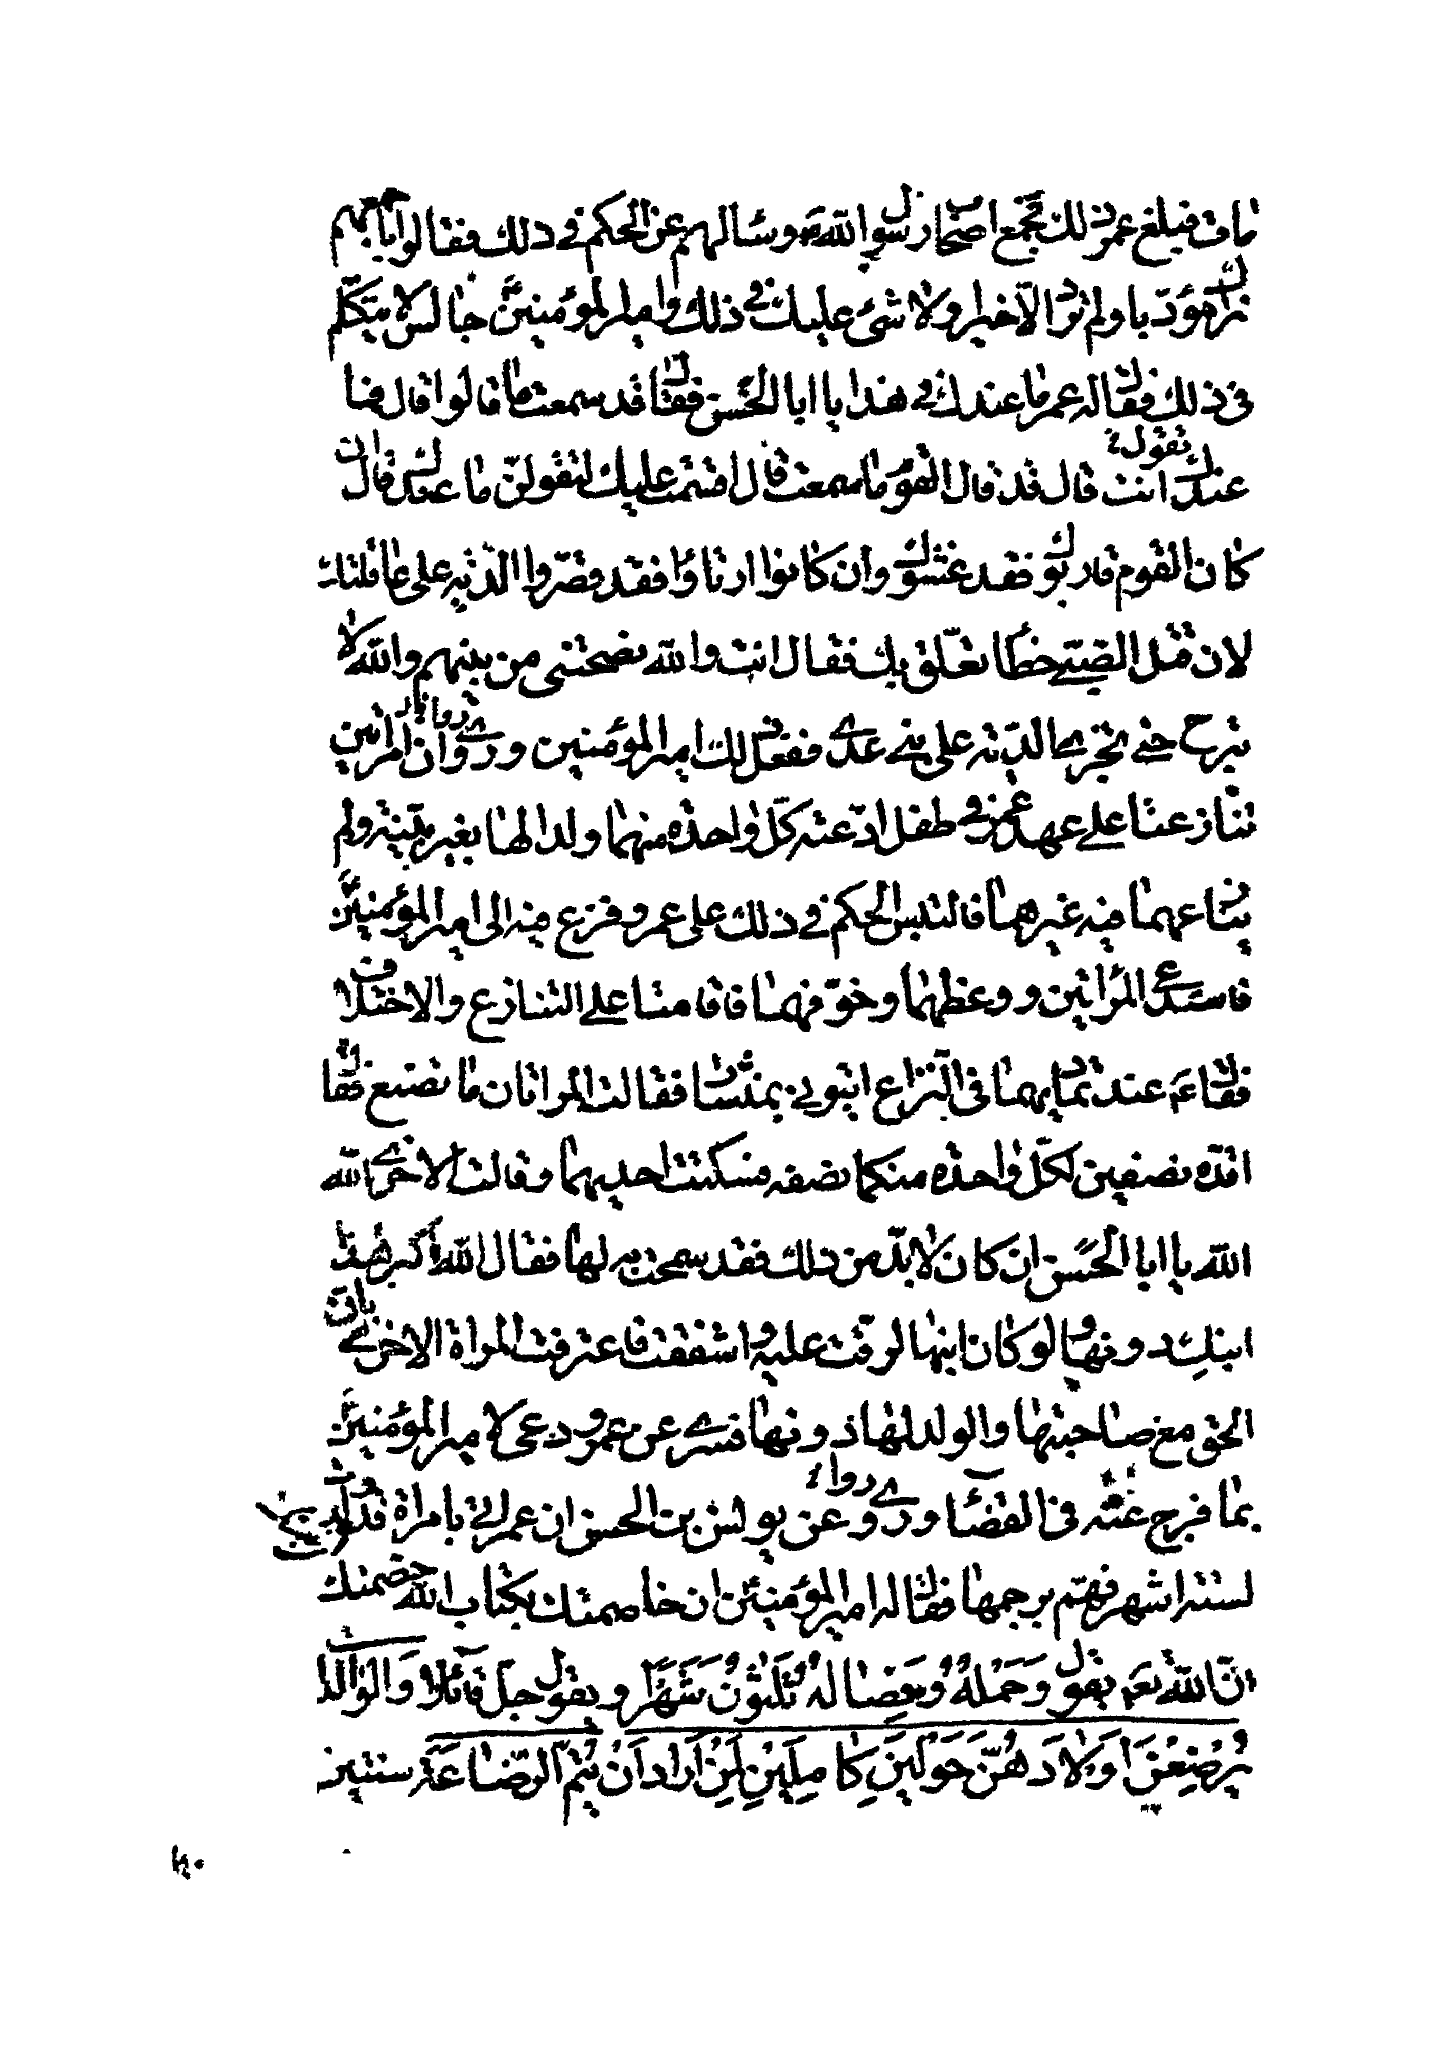 مات فبلغ عمر ذلك فجمع اصحاب رسول الله ص وسالهم عن الحكم في ذلك فقالوا باجمعهم
نراك مؤدبا ولم ترد الا خيرا ولا شئ عليك في ذلك وامير المؤمنين جالس لا يتكلم
في ذلك فقال له عمر ما عندك في هذا يا ابا الحسن فقال قد سمعت ما قالوا قال فما
عندك انت قال قد قال القوم ما سمعت قال اقسمت عليك لتقولن ما عندك قال ان
كان القوم قاربوك فقد غشوك وان كانوا ارتاوا فقد قصروا الدية على عاقلتك
لان قتل الصبي خطا تعلق بك فقال انت والله نصحتني من بينهم والله لا
تبرح حتى تجري الدية على بني عدي ففعل ذلك امير المؤمنين ورووا ان امراتين
تنازعتا على عهد عمر في طفل ادعته كل واحدة منهما ولدا لها بغير بينة ولم
ينازعهما فيه غيرهما فالتبس الحكم في ذلك على عمر وفزع فيه الى امير المؤمنين
فاستدعى المراتين ووعظهما وخوفهما فاقامتا على التنازع والاختلاف
فقال ع عند تماديهما في النزاع ايتوني بمنشار فقالت المراتان ما تصنع فقال
اقده نصفين لكل واحدة منكما نصفه فسكتت احديهما وقالت الاخرى الله
الله يا ابا الحسن ان كان لا بد من ذلك فقد سمحت به لها فقال الله اكبر هذا
ابنك دونها ولو كان ابنها لرقت عليه واشفقت فاعترفت المراة الاخرى بان
الحق مع صاحبتها والولد لها دونها فسرى عن عمر ودعى لامير المؤمنين
بما فرج عنه في القضاء وروي عن يونس بن الحسن ان عمر اتي بامراة قد ولدت
لستة اشهر فهم برجمها فقال له امير المؤمنين ان خاصمتك بكتاب الله خصمتك
ان الله تعم يقول وَحَمْلُهُ وَفِصَالُهُ ثَلَثُونَ شَهْرًا ويقول جل قائلا وَالوَالِدَاتُ
يُرْضِعْنَ اَوْلَادَهُنَّ حَوْلَيْنِ كَامِلَيْنِ لِمَنْ اَرَادَ اَنْ يُتِمَّ الرَّضَاعَةَ سنتين